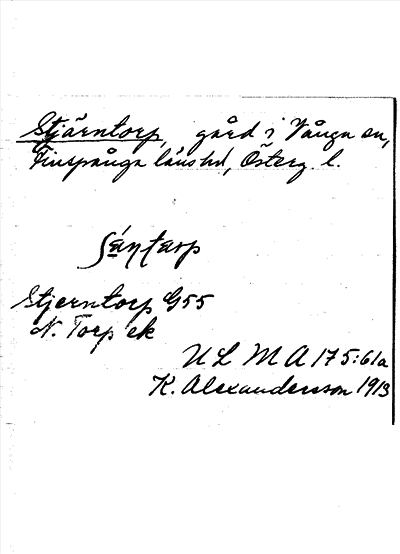 Stjärntorp, gård i Vånga sn,
Finspånga länshd, Österg. l.
Stjerntorp G55
N. Torp ek
U L M A 175:61a
K. Alexandersson 1913